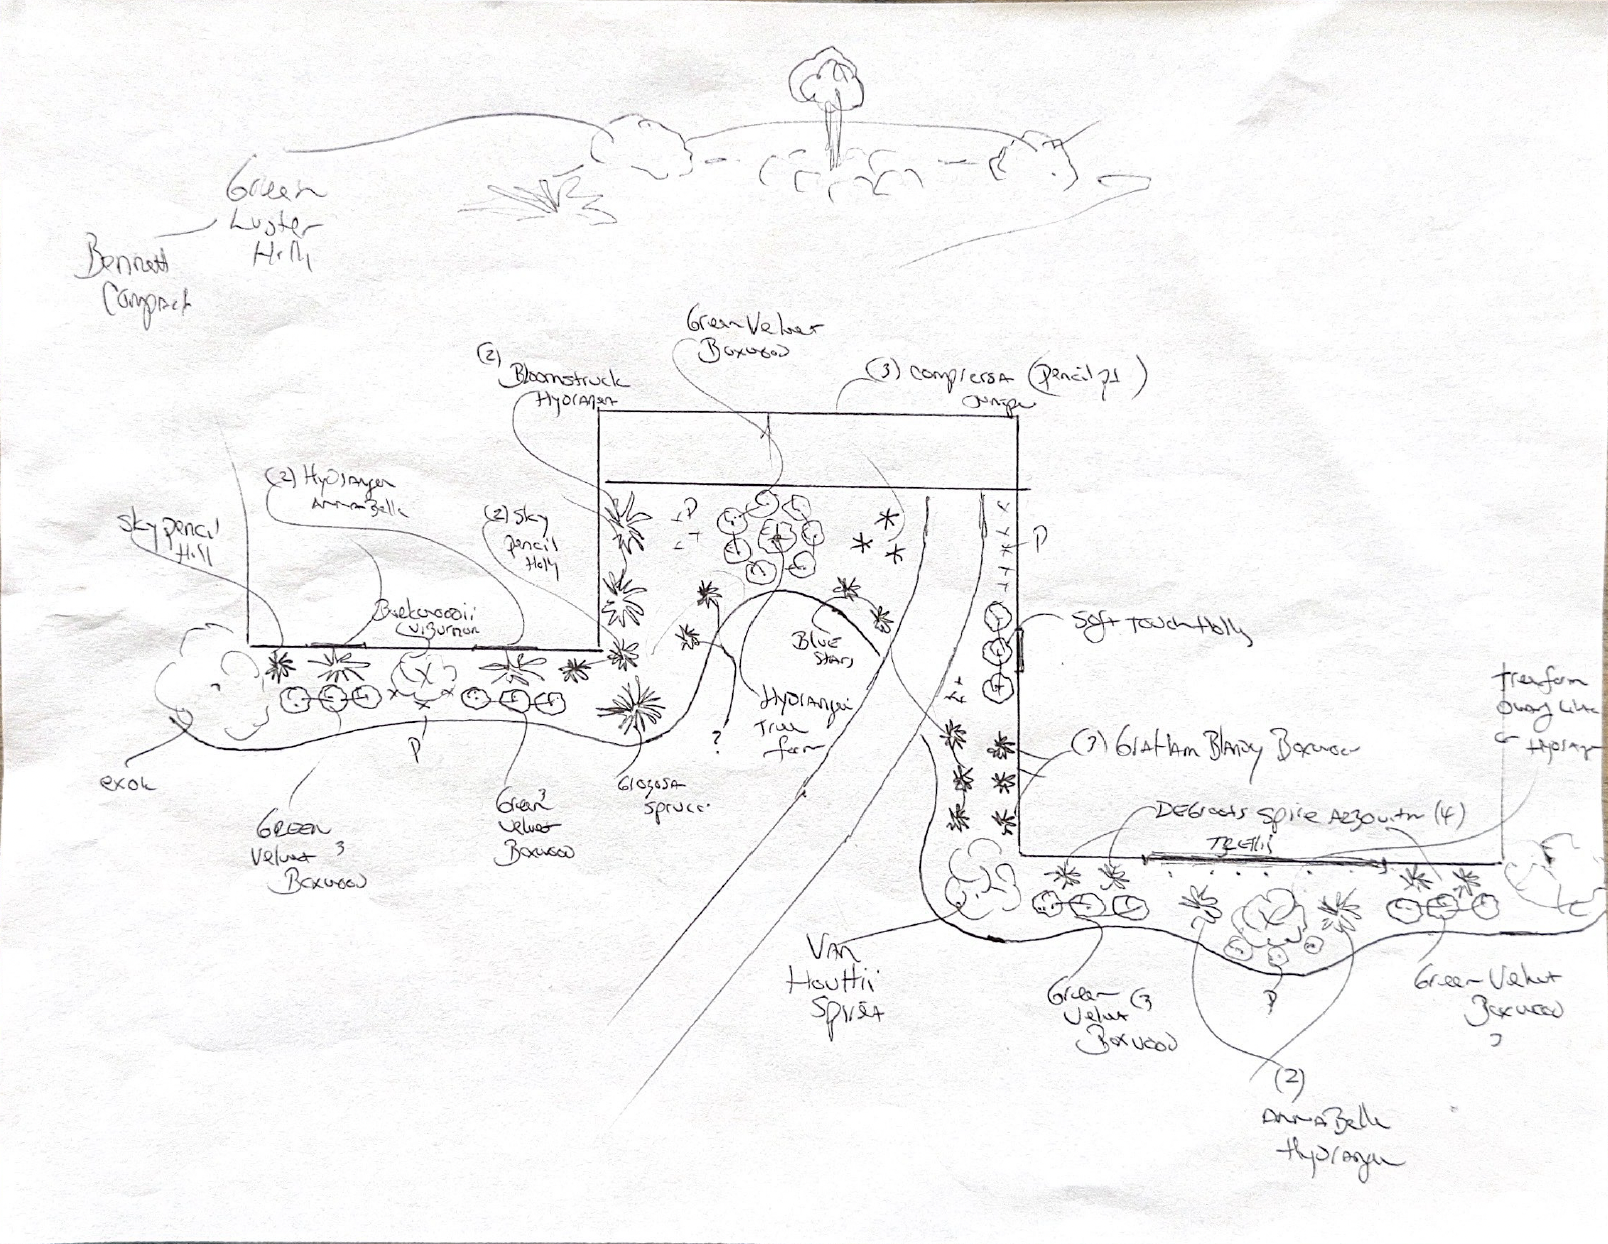 Green
Luster
Holly
Bennett
Compact
Green Velvet
Boxwood
(2)
Bloomstruck
Hydrangea
(3) Compressa (Pencil pt)
Juniper
(2) Hydrangea
AnnaBelle
Sky pencil
Holly
(2) Sky
pencil
Holly
P
P
Burkwoodii
Viburnum
Soft Touch Holly
Blue
Stars
Hydrangea
Tree
form
?
P
(3) Graham Blandy Boxwood
Treeform
Hydrangea
DEGroots Spire Arborvitae (4)
TRELLIS
Globosa
Spruce
Green 3
Velvet
Boxwood
GREEN
Velvet 3
Boxwood
VAN
Houttii
Spirea
Green (3
Velvet
Boxwood
P
Green Velvet
Boxwood
3
(2)
AnnaBelle
Hydrangea